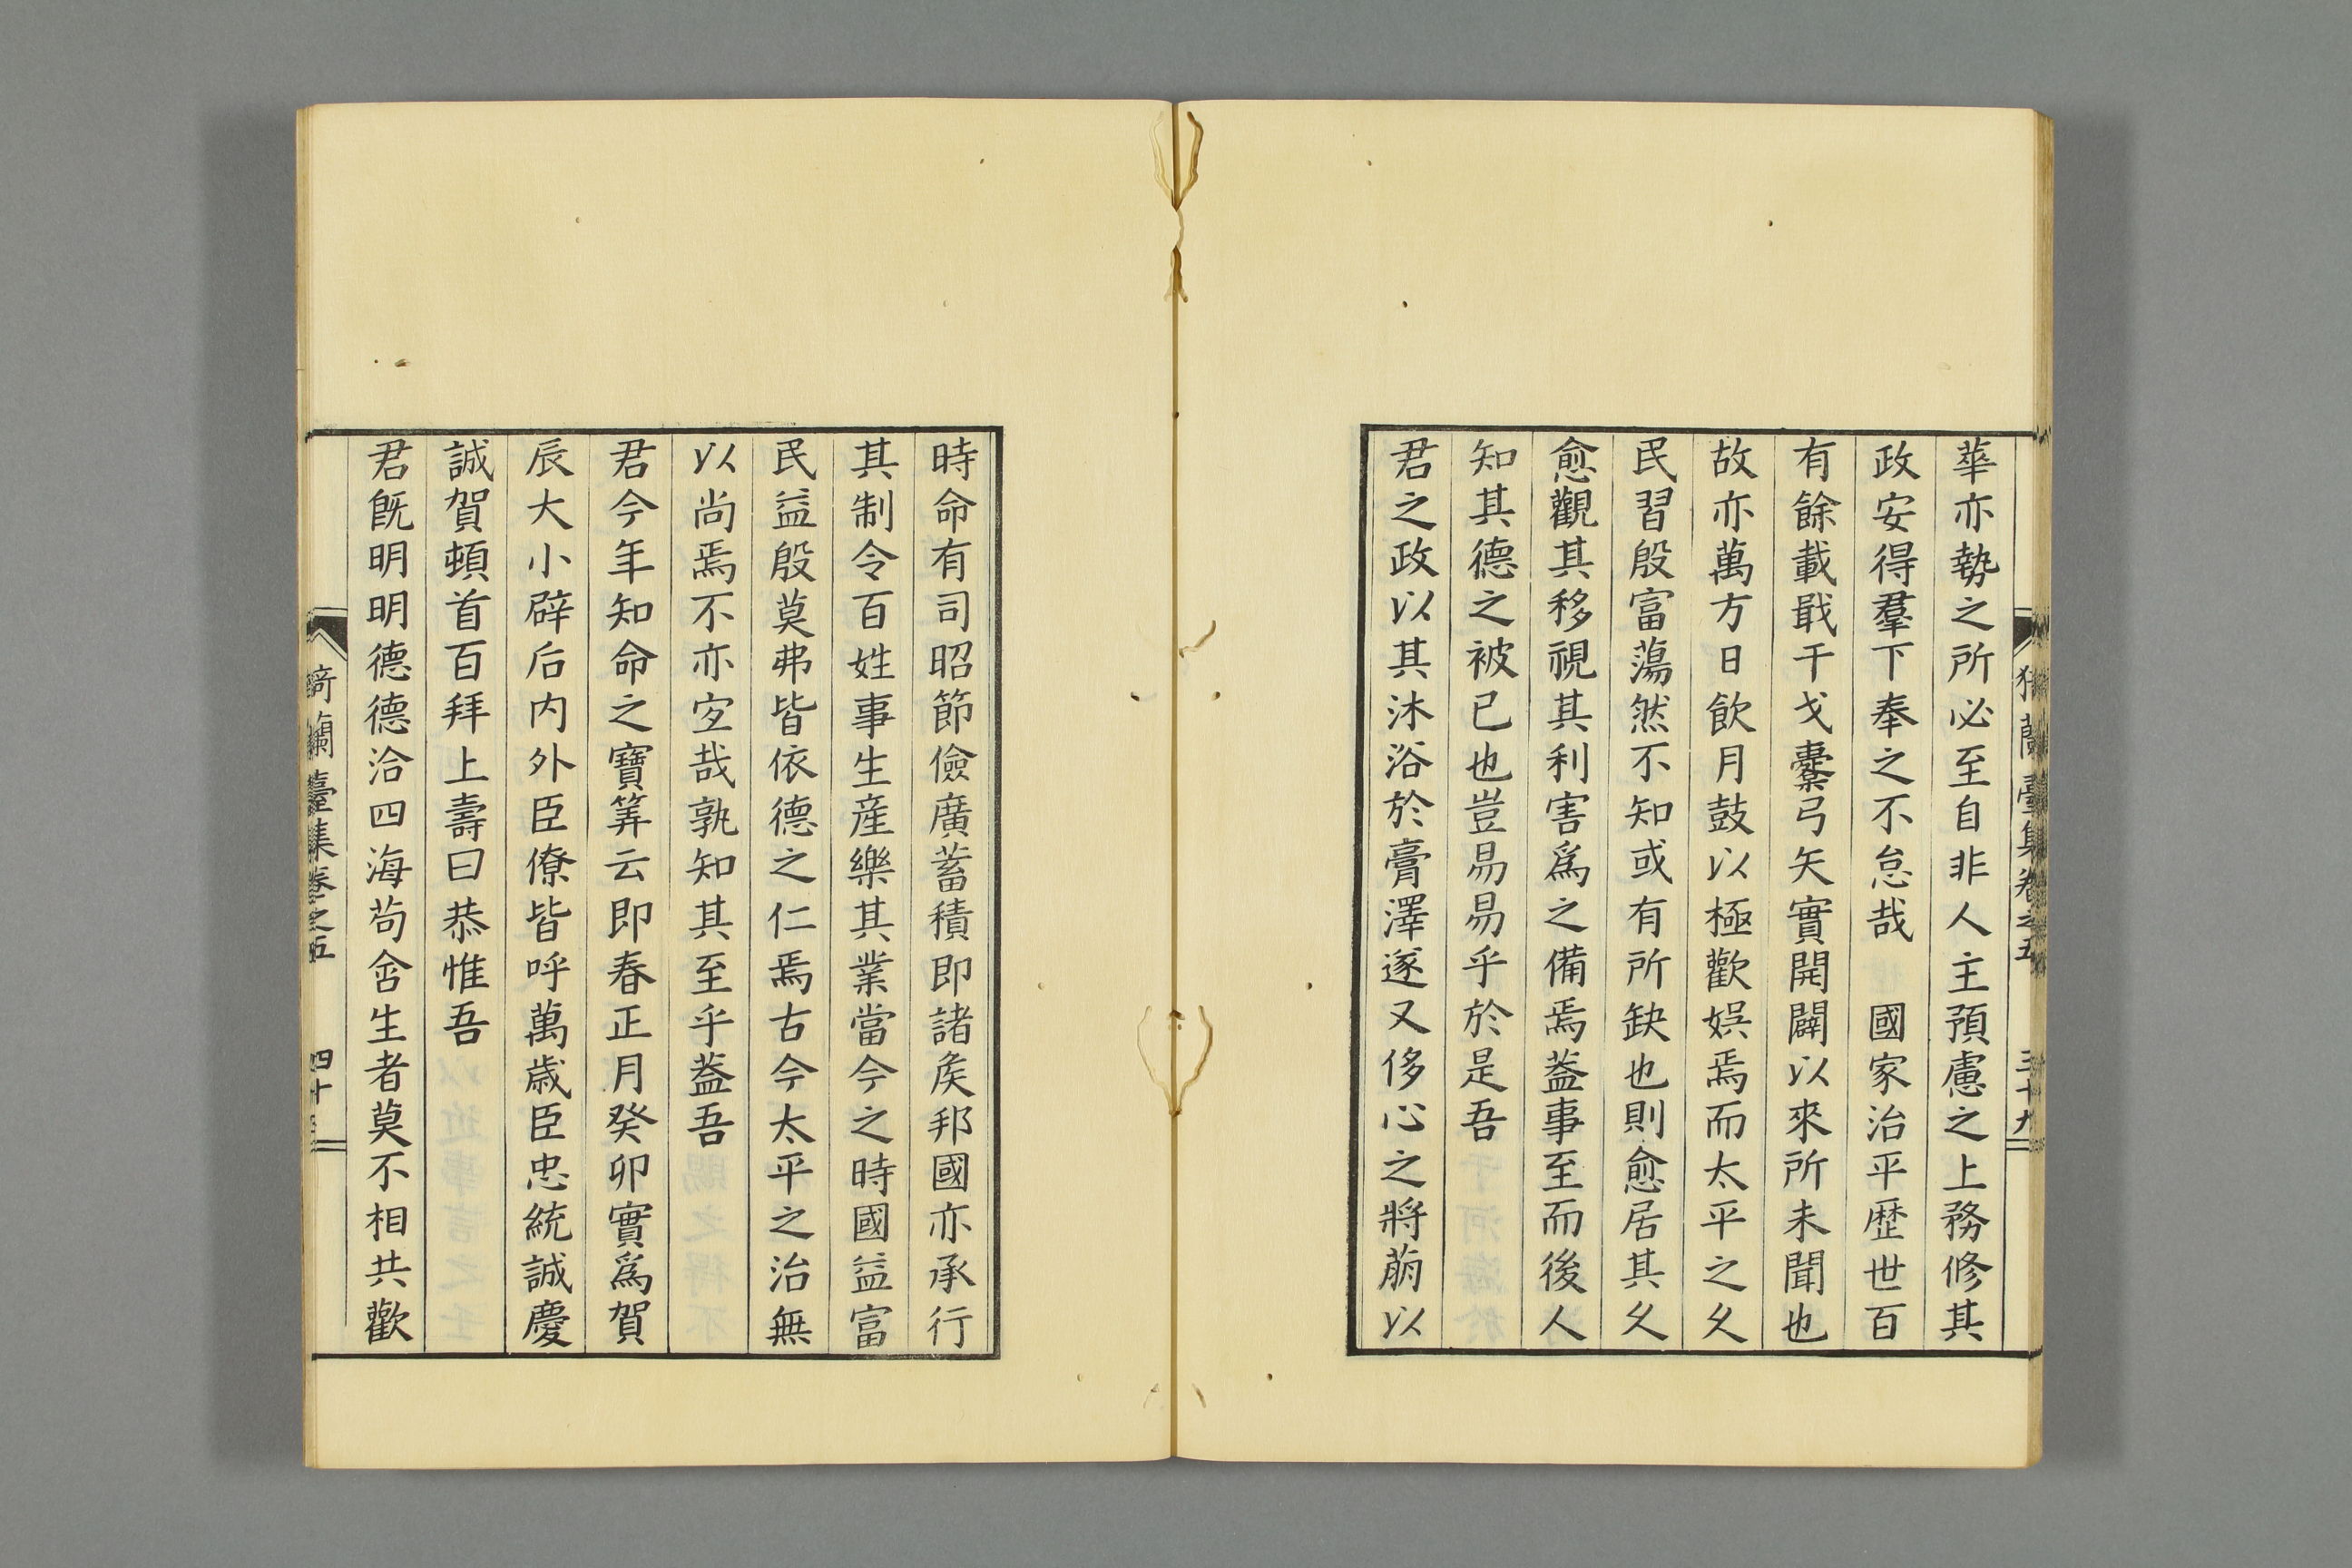 華亦勢之所必至自非人主預慮之上務修其
政安得羣下奉之不怠哉　國家治平歷世百
有餘載戢干戈櫜弓矢實開闢以來所未聞也
故亦萬方日飲月鼓以極歡娯焉而太平之久
民習殷富蕩然不知或有所缺也則愈居其久
愈觀其移視其利害爲之備焉蓋事至而後人
知其德之被已也豈易易乎於是吾
君之政以其沐浴於膏澤遂又侈心之將萠以
時命有司昭節儉廣蓄積即諸矦邦國亦承行
其制令百姓事生産樂其業當今之時國益富
民益殷莫弗皆依德之仁焉古今太平之治無
以尚焉不亦宜哉孰知其至乎蓋吾
君今年知命之寶筭云即春正月癸卯實爲賀
辰大小辟后内外臣僚皆呼萬歳臣忠統誠慶
誠賀頓首百拜上壽曰恭惟吾
君旣明明德德洽四海苟含生者莫不相共歡
猗蘭臺集卷之五　三十九
猗蘭臺集卷之五　四十